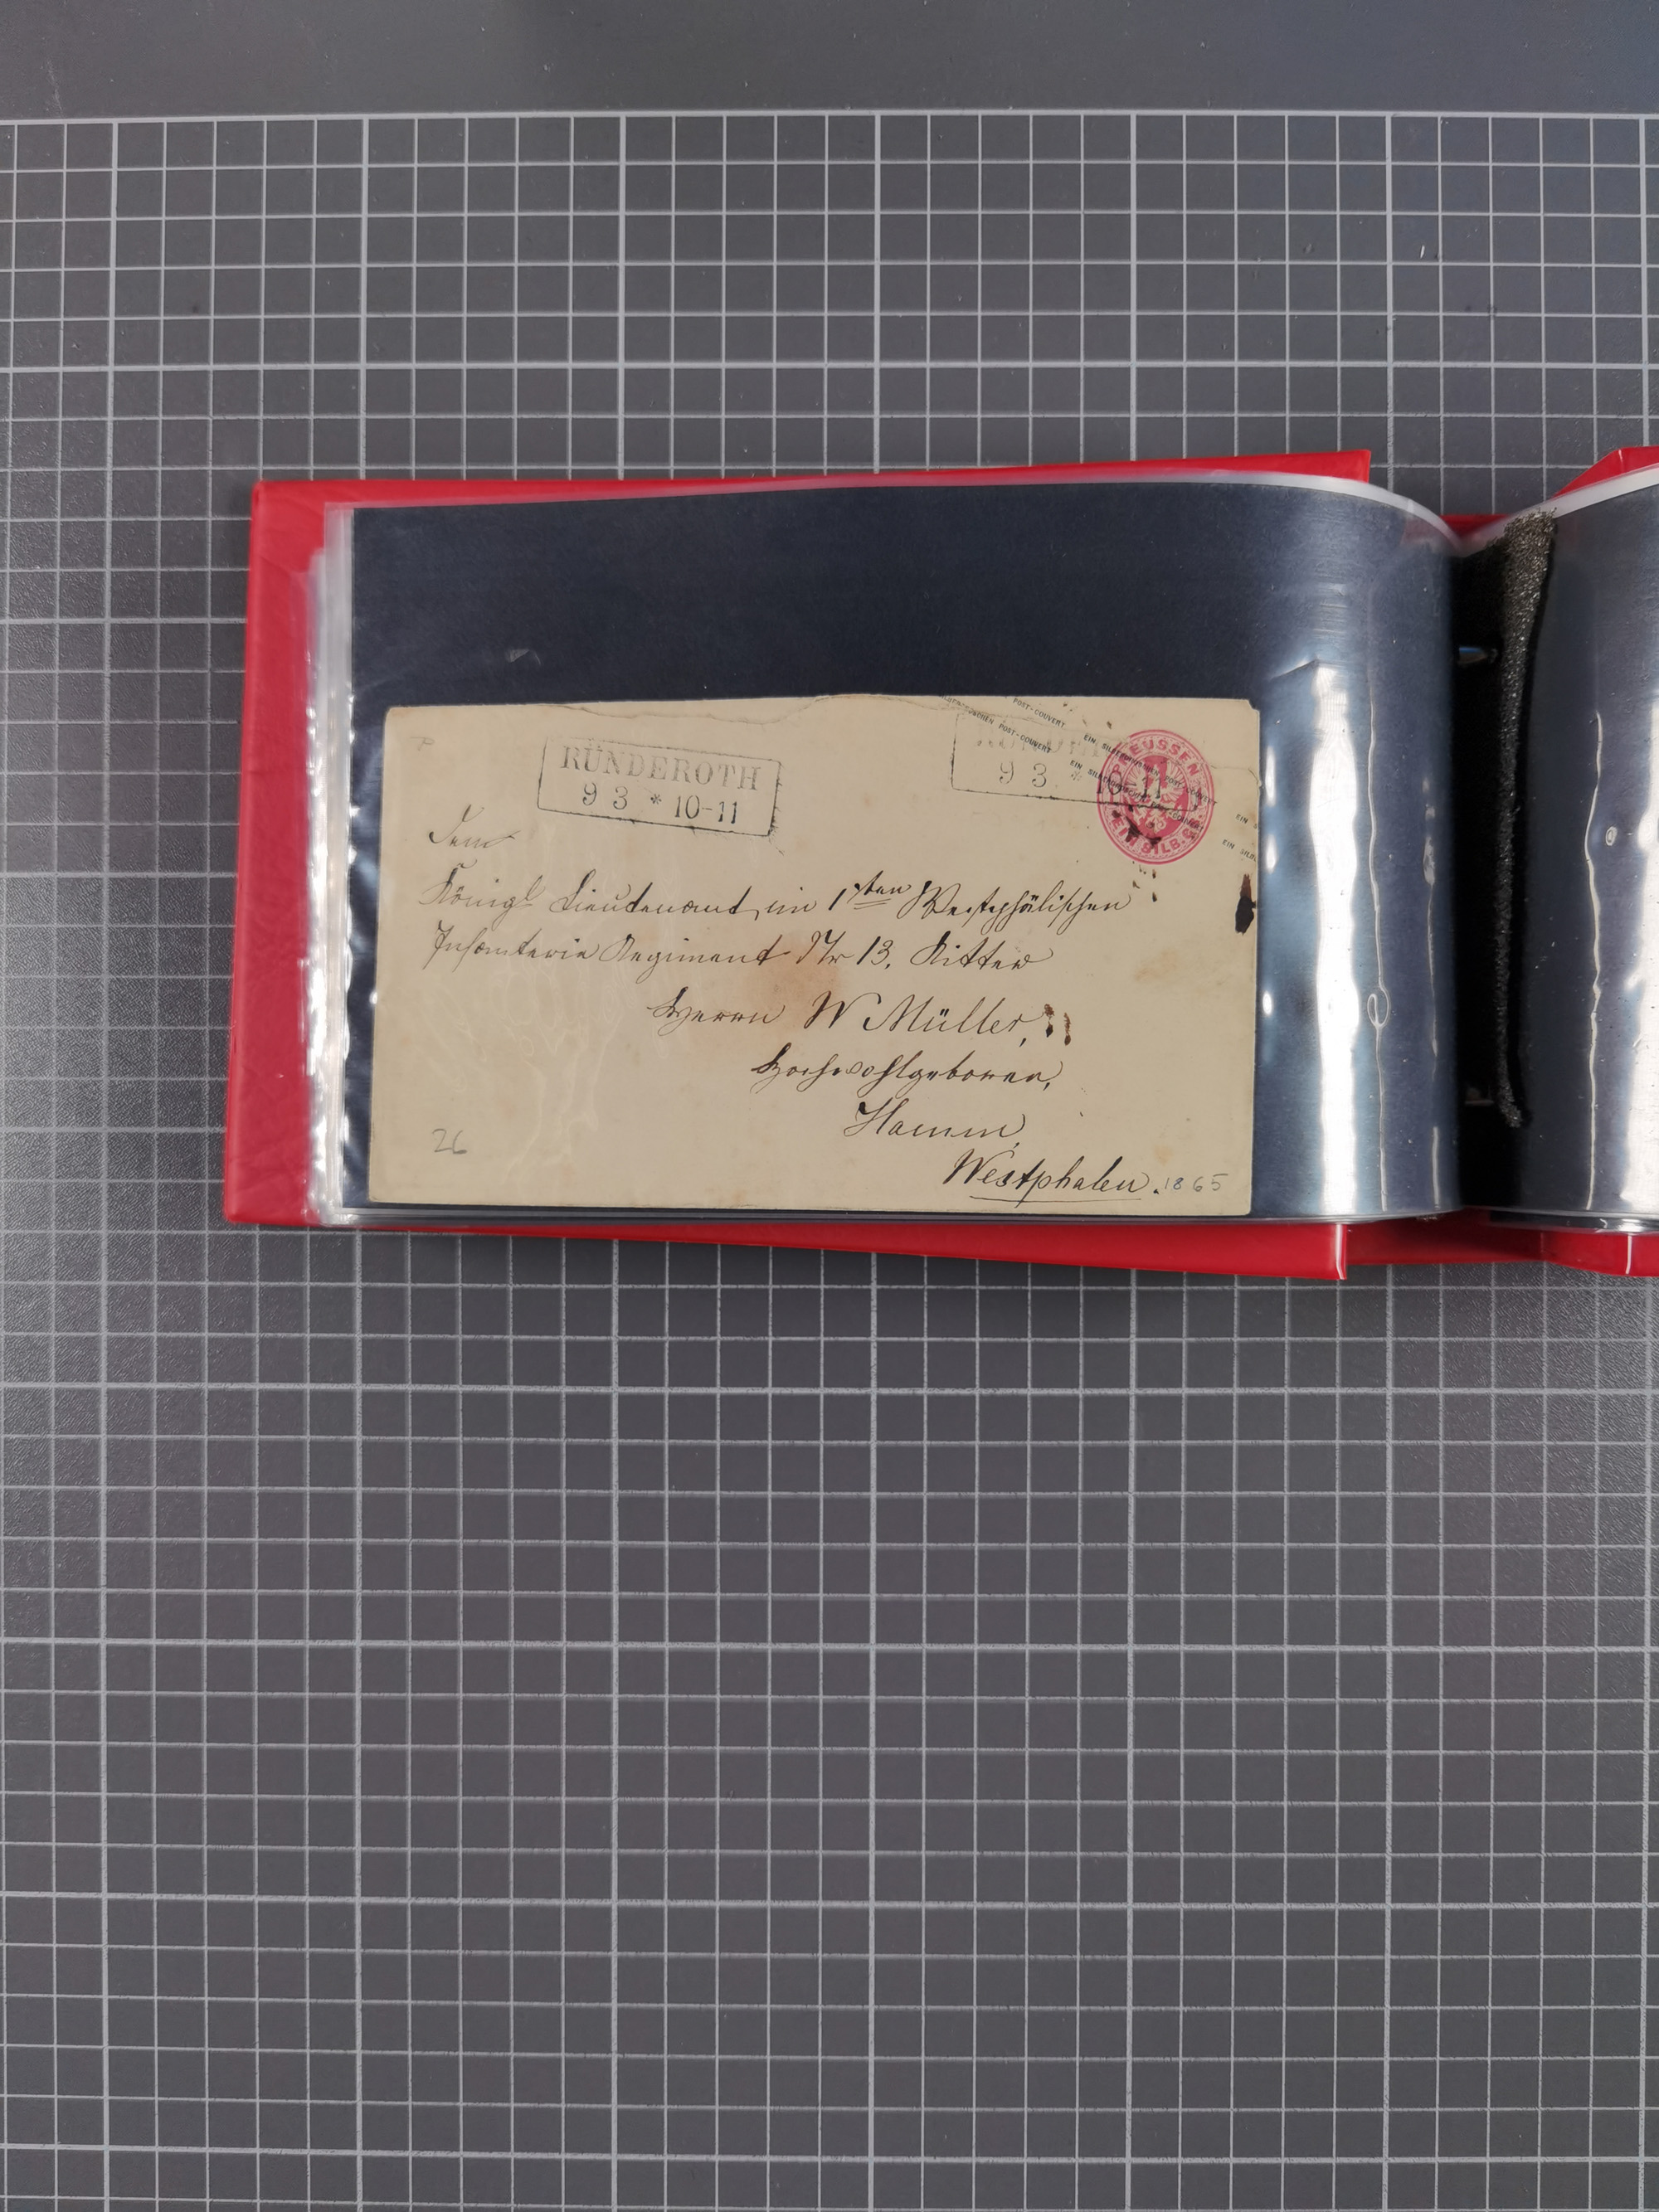 RÜNDEROTH
9 3 * 10-11
9 3 * 10-11
POST-COUVERT
POST-COUVERT EIN SILBERGROSCHEN POST-COUVERT
PREUSSEN
EIN SILB. GR.
Dem
Königl Lieutenant im 1ten Westphälischen
Infanterie Regiment Nr 13. Ritter
Herrn W Müller,
Hochwohlgeboren,
Hamm,
Westphalen. 1865
26